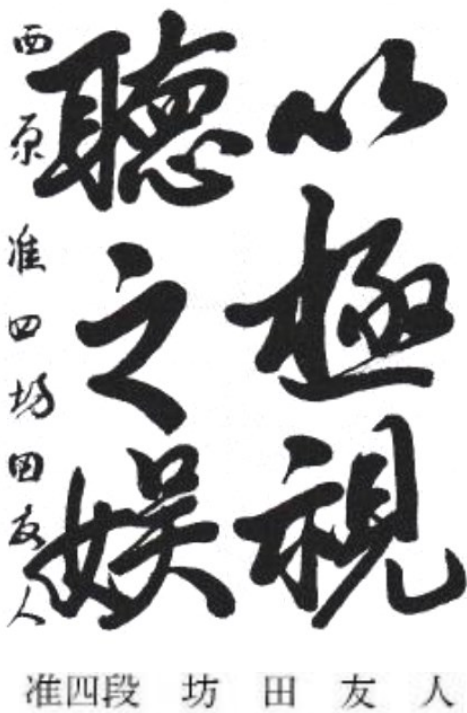 以極視
聽之娯
西原 准四 坊田友人
准四段 坊田友人